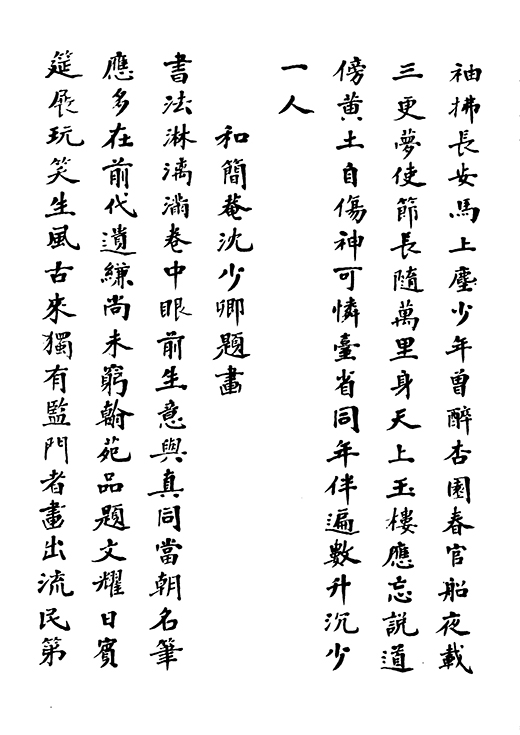 袖拂長安馬上塵少年曾醉杏園春官船夜載
三更夢使節長隨萬里身天上玉樓應忘說道
傍黄土自傷神可憐臺省同年伴遍數升沉少
一人
和簡菴沈少卿題畫
書法淋漓滿卷中眼前生意與真同當朝名筆
應多在前代遺縑尚未窮翰苑品題文耀日賓
筵展玩笑生風古來獨有監門者畫出流民第